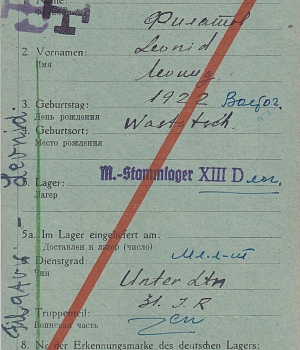 Name:
Филатов
2. Vornamen:
Имя
Leonid
Леонид
3. Geburtstag:
День рождения
1922
4. Geburtsort:
Место рождения
Wastatsch.
Lager:
Лагер
M.-Stammlager XIII D
5a. Im Lager eingeliefert am:
Доставлен в лагер (число)
Dienstgrad:
Чин
Мл. л-т
Unter Ltn
Truppenteil:
Воинская часть
J. R
8. No der Erkennungsmarke des deutschen Lagers:
Filatow - Leonid.